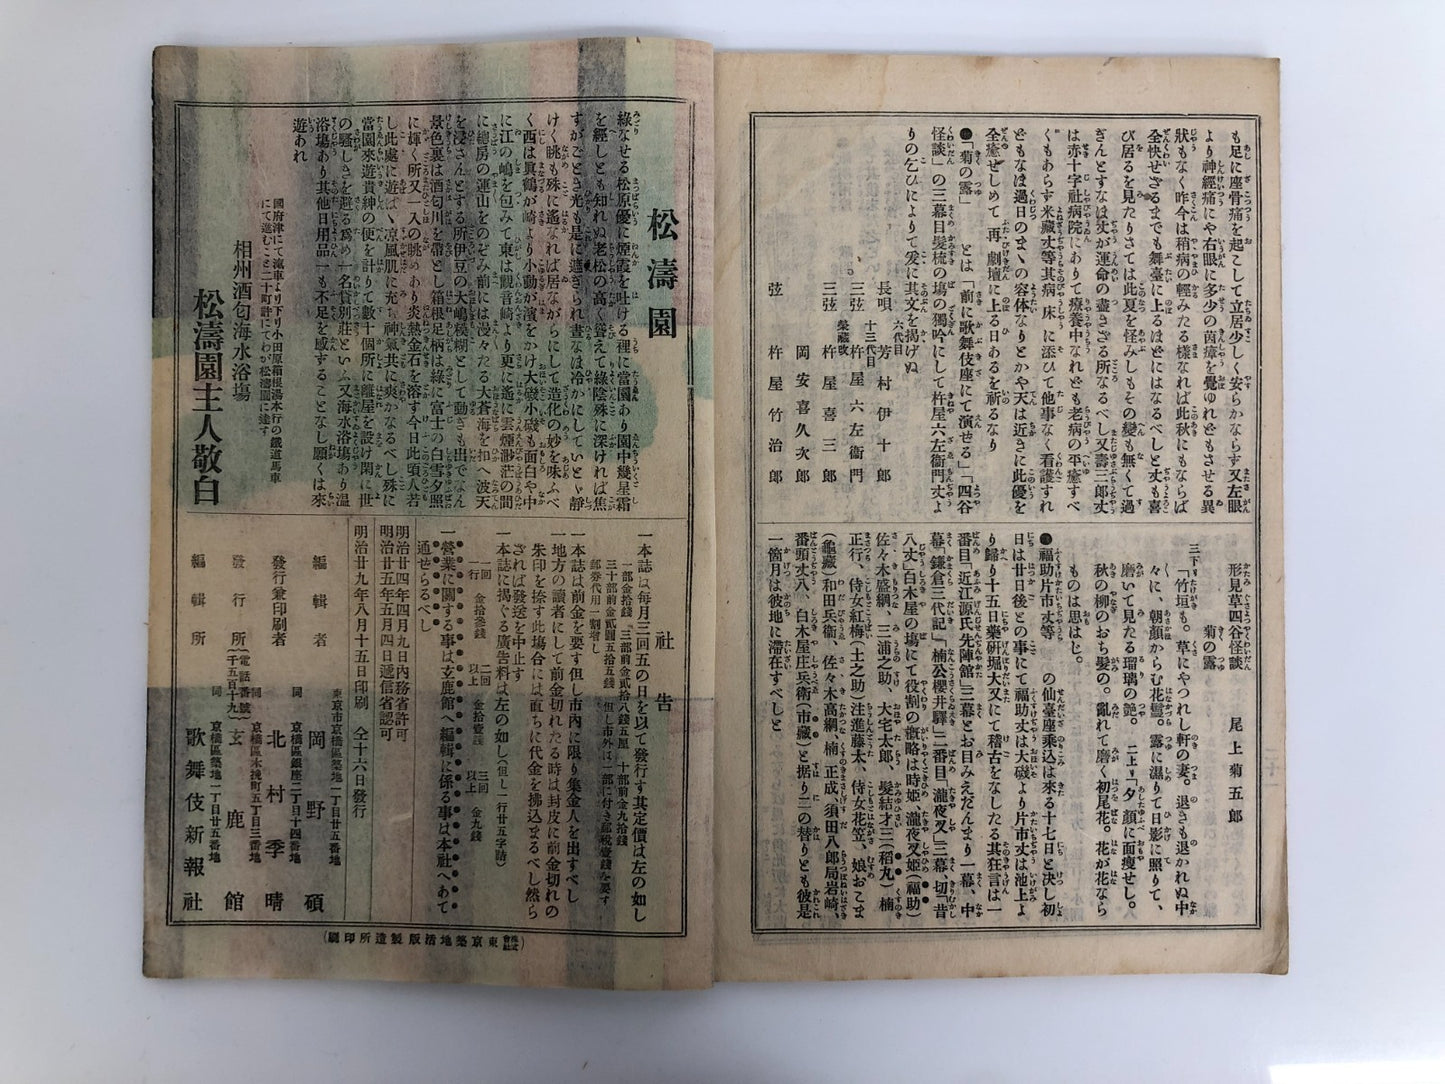 も足に座骨痛を起こして立居少しく安らかならず又左眼
より神經痛にや右眼に多少の茵瘴を覺ゆれどもさせる異
狀もなく昨今は稍病の輕みたる樣なれば此秋にもならば
全快せざるまでも舞臺に上るほどにはなるべしと丈も喜
び居るを見たりさては此夏を怪みしもその變も無くて過
ぎんとすなは丈が運命の盡きざる所なるべし又壽二郎丈
は赤十字社病院にありて療養中なれども老病の平癒すべ
くもあらず米藏丈等其病床に添ひて他事なく看護すれ
どもなほ過日のまゝの容体なりとかや天は近きに此優を
全癒せしめて再び劇壇に上る日あるを祈るなり
●「菊の露」とは「前に歌舞伎座にて演せる」「四谷
怪談」の三幕目髮梳の塲の獨吟にして杵屋六左衞門丈よ
りの乞ひによりて爰に其文を揭げぬ
長唄 六代目 芳村伊十郎
三弦 十三代目 杵屋六左衞門
三弦 榮藏改 杵屋喜三郎
岡安喜久次郎
弦 杵屋竹治郎
形見草四谷怪談 尾上菊五郎
菊の露
三下リ「竹垣も。草にやつれし軒の妻。退さも退かれぬ中
々に、朝顏からむ花鬘。露に濕りて日影に照りて、
磨いて見たる瑠璃の艶。二上リ「夕顏に面瘦せし。人
秋の柳のおち髮の。亂れて磨く初尾花。花が花なら
ものは思はじ。
●福助片市丈等の仙臺座乘込は來る十七日と決し初
日は廿日後との事にて福助丈は大磯より片市丈は池上よ
り歸り十五日藥研堀大又にて稽古をなしたる其狂言は一
番目「近江源氏先陣館」三幕とお目みえだんまり一幕、中
幕「鎌倉三代記」「楠公櫻井驛」二番目「瀧夜叉」三幕、切「昔
八丈」白木屋の塲にて役割の槪略は時姬、瀧夜叉姬(福助)
佐々木盛綱、三浦之助、大宅太郎、髮結才三(稻丸)楠
正行、侍女紅梅(士之助)注進藤太、侍女花笠、娘おこま
(龜藏)和田兵衞、佐々木高綱、楠正成、須田八郎局岩崎、
番頭丈八、白木屋庄兵衞(市藏)と据り二の替りとも彼是
一箇月は彼地に滯在すべしと
松濤園
綠なせる松原優に煙霞を吐ける裡に當園あり園中幾星霜
を經しとも知れぬ老松の高く聳えて綠陰殊に深ければ焦
すがごとき光も是に遮ぎられ晝なほ冷かにしていとゞ靜
けく眺も殊に遙なれば居ながらにして造化の妙を味ふべ
く西は眞鶴が崎より小動が濱をかけ大磯小磯も面白や中
に江の嶋を包みて東は觀音崎より更に遙に雲煙渺茫の間
に總房の連山をのぞみ前には漫々たる大蒼海を扣へ波天
を浸さんとする所伊豆の大嶋糢糊として動きも出でなん
景色裏は酒匂川を帶とし箱根足柄は綠に富士の白雪夕照
に輝く所又一入の眺めあり炎熱金石を溶す今日此頃人若
し此處に遊ばゞ凉風肌に充ち神氣共に爽かなるべし殊に
當園來遊貴紳の便を計りて數十個所に離屋を設け閑に世
の騷しさを避る爲め一名貸別莊といふ又海水浴塲あり溫
浴塲あり其他日用品一も不足を感ずることなし願くは來
遊あれ
國府津にて滊車より下り小田原箱根湯本行の鐵道馬車
にて進むこと二十町許にしてわが松濤園に達す
相州酒匂海水浴塲
松濤園主人敬白
社告
一本誌は每月三回五の日を以て發行す其定價は左の如し
一部金拾錢『三部前金貳拾八錢五厘 十部前金九拾錢
三十部前金貳圓五拾五錢 但し市外は一部に付き郵稅壹錢を要す
郵券代用一割增し
一本誌は前金を要す但し市内に限り集金人を出すべし
一地方の讀者にして前金切れたる時は封皮に前金切れの
朱印を捺す此塲合には直ちに代金を拂込まるべし然ら
ざれば發送を中止す
一本誌に揭ぐる廣告料は左の如し(但し一行廿五字詰)
一回 二回以上 三回以上
一行 金拾參錢 金拾壹錢 金九錢
一營業に關する事は玄鹿館へ編輯に係る事は本社へあて
通せらるべし
明治廿四年四月九日内務省許可
明治廿五年五月四日遞信省認可
明治廿九年八月十五日印刷 仝十六日發行
東京市京橋區築地一丁目廿五番地
編輯者 岡野碩
同 京橋區銀座二丁目十四番地
發行兼印刷者 北村季晴
同 京橋區木挽町五丁目三番地
發行所 (電話番號千五百十九) 玄鹿館
同 京橋區築地一丁目廿五番地
編輯所 歌舞伎新報社
(株式會社東京築地活版製造所印刷)